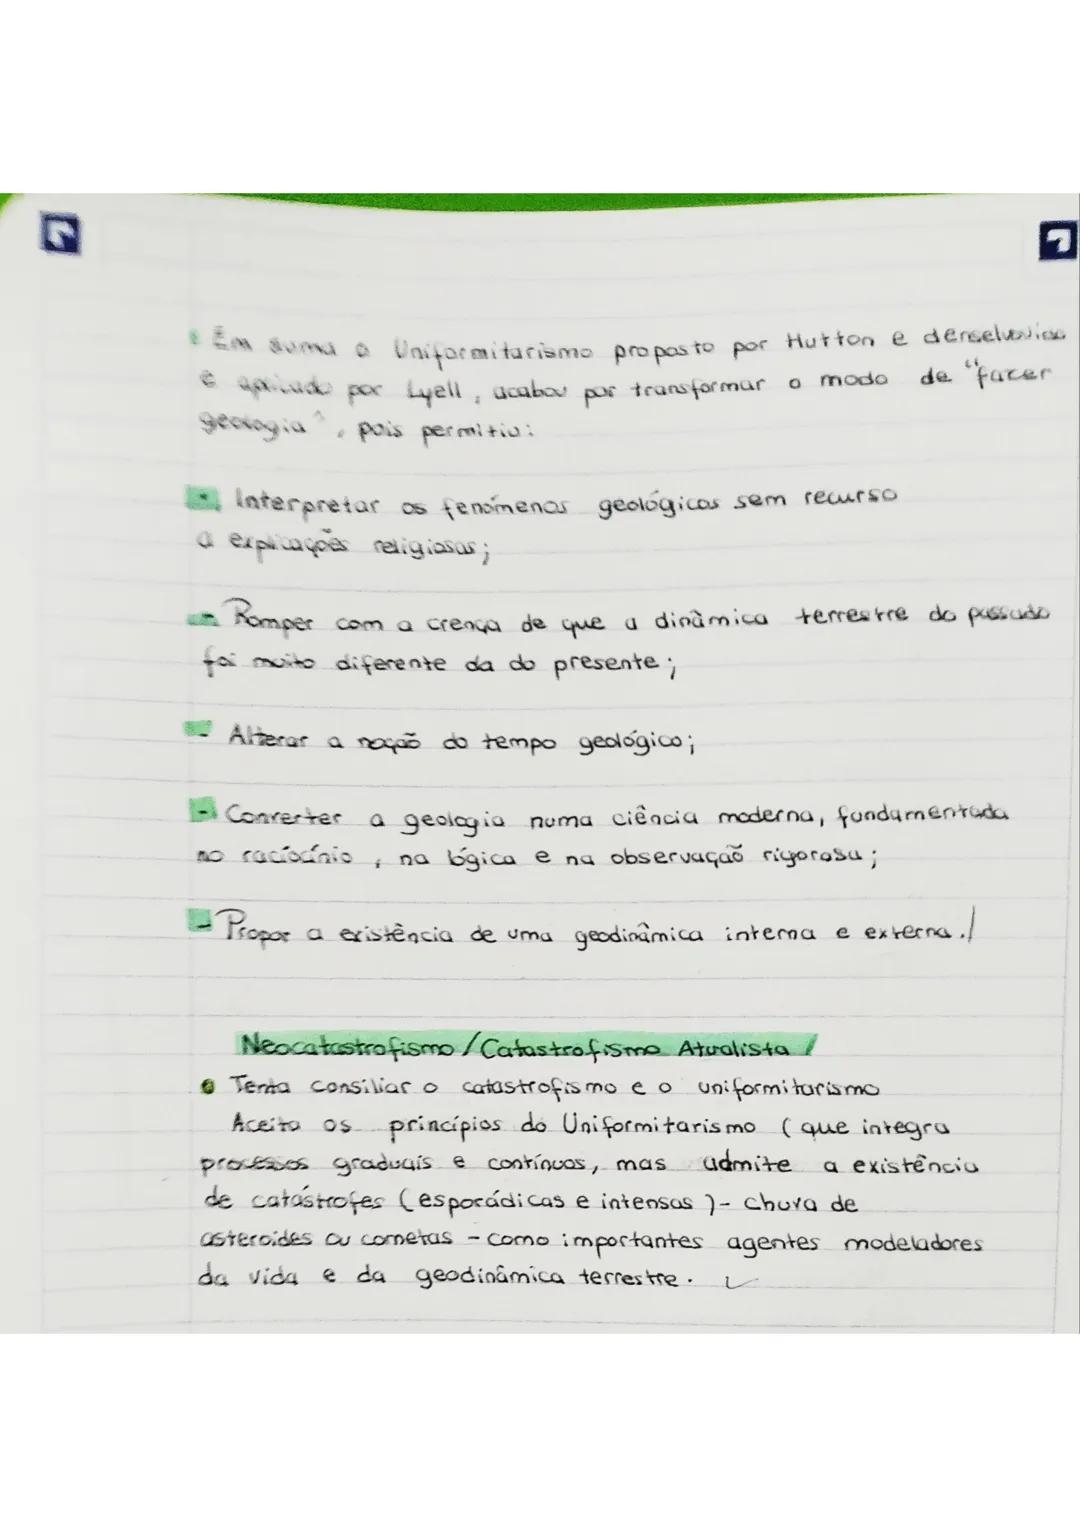 Em suma o Uniformitarismo proposto por Hutton e
e por Lyell, acabou por transformar o modo de "fazer
geologia", pois permitiu:
- Interpretar os fenómenos geológicos sem recurso
a explicações religiosas;
- Romper com a crença de que a dinâmica terrestre do passado
foi muito diferente da do presente;
- Alterar a noção do tempo geológico;
- Converter a geologia numa ciência moderna, fundamentada
no raciocínio, na lógica e na observação rigorosa;
- Propor a existência de uma geodinâmica interna e externa./
Neocatastrofismo/Catastrofismo Atualista/
• Tenta consiliar o catastrofismo e o uniformitarismo
Aceita os princípios do Uniformitarismo (que integra
processos graduais e contínuos, mas admite a existência
de catástrofes (esporádicas e intensas)- chuva de
asteroides ou cometas - como importantes agentes modeladores
da vida e da geodinâmica terrestre.